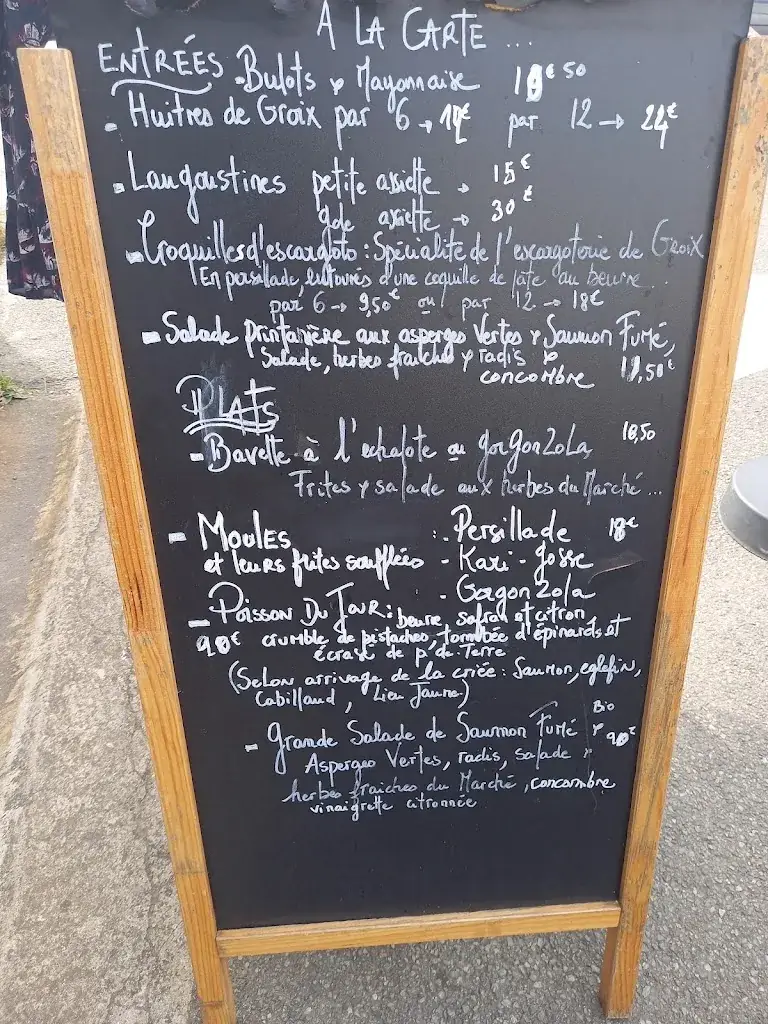 A LA CARTE ...
ENTRÉES - Bulots & Mayonnaise 10€50
- Huitres de Groix par 6 → 12€ par 12 → 24€
- Langoustines petite assiette → 15€
gde assiette → 30€
- Croquilles d'escargots : Spécialité de l'escargoterie de Groix
En persillade, entourés d'une coquille de pate au beurre.
par 6 → 9,50€ ou par 12 → 18€
- Salade printanière aux asperges Vertes & Saumon Fumé,
Salade, herbes fraiches & radis &
concombre 11,50€
PLATS
- Bavette à l'echalote ou gorgonzola, 18,50
Frites & salade aux herbes du Marché ...
- MOULES : . Persillade 18€
et leurs frites soufflées - Kari-Gosse
- Gorgonzola
- POISSON DU JOUR : beurre, safran et citron,
20€ crumble de pistaches, tombée d'épinards et
écrasé de p. de Terre
(Selon arrivage de la criée : Saumon, eglefin,
Cabillaud, Lieu Jaune)
- Grande Salade de Saumon Fumé Bio & 20€
Asperges Vertes, radis, salade &
herbes fraiches du Marché, concombre
vinaigrette citronnée